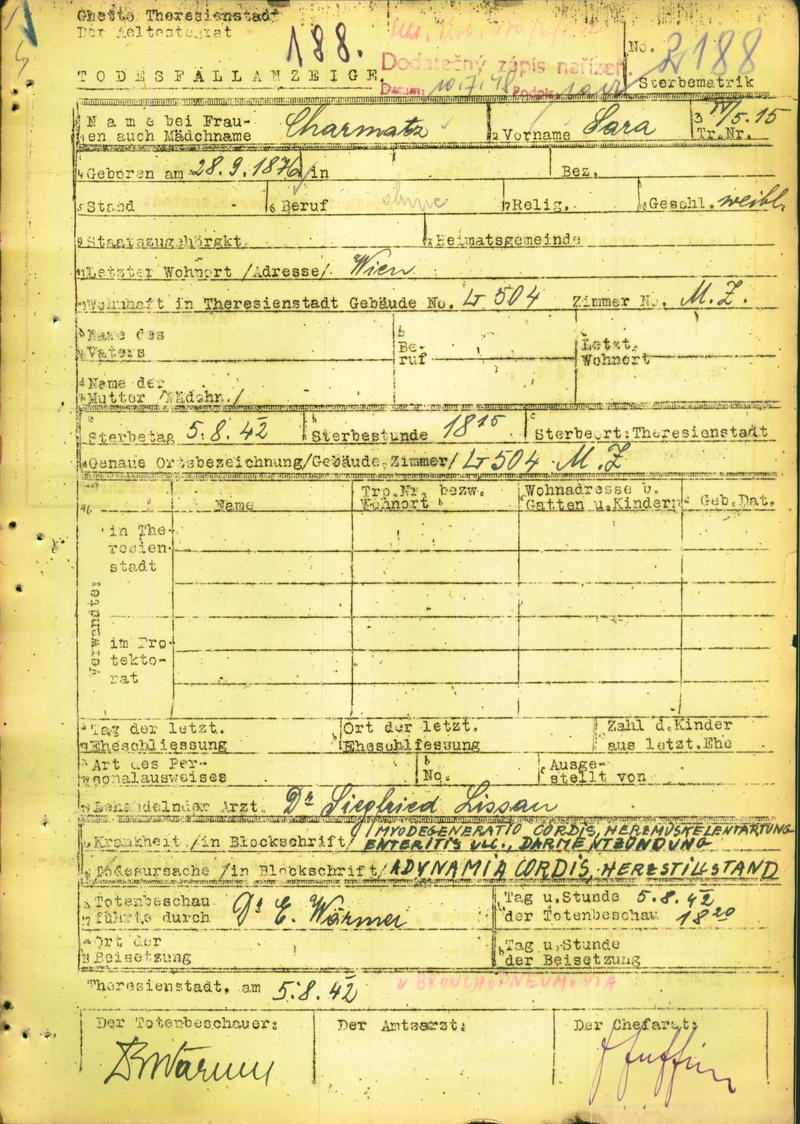 Ghetto Theresienstadt
Der Aeltestenrat
188.
No. 188
Dodatečný zápis nařízen
TODESFALLANZEIGE.
Datum: 10.7.48 Podpis
Sterbematrik
Name bei Frauen auch Mädchname Charmatz Vorname Sara 3 IV/5.15 Tr.Nr.
Geboren am 28.9.1876 in Bez.
Stand Beruf Relig. Geschl. weibl.
Staatszugehörgkt. Heimatsgemeinde
Letzter Wohnort /Adresse/ Wien
Wohnhaft in Theresienstadt Gebäude No. L 504 Zimmer No. M.Z.
Name des Vaters Beruf Letzt. Wohnort
Name der Mutter /Mädchn./
Sterbetag 5.8.42 Sterbestunde 18 15 Sterbeort: Theresienstadt
Genaue Ortsbezeichnung/Gebäude, Zimmer/ L 504 M.Z
Name Trp.Nr. bezw. Wohnort Wohnadresse b. Gatten u. Kindern Geb.Dat.
Verwandte
in Theresienstadt
im Protektorat
Tag der letzt. Eheschliessung Ort der letzt. Eheschliessung Zahl d.Kinder aus letzt.Ehe
Art des Personalausweises No. Ausgestellt von
Behandelnder Arzt Dr Siegfried Lissau
Krankheit /in Blockschrift/ MYODEGENERATIO CORDIS, HERZMUSKELENTARTUNG
ENTERITIS ULC., DARMENTZÜNDUNG
Todesursache /in Blockschrift/ ADYNAMIA CORDIS, HERZSTILLSTAND
Totenbeschau führte durch Dr E. Wärmer Tag u. Stunde der Totenbeschau 5.8.42 18 20
Ort der Beisetzung Tag u. Stunde der Beisetzung
Theresienstadt, am 5.8.42 BRONCHOPNEUMONIA
Der Totenbeschauer: Der Amtsarzt: Der Chefarzt: